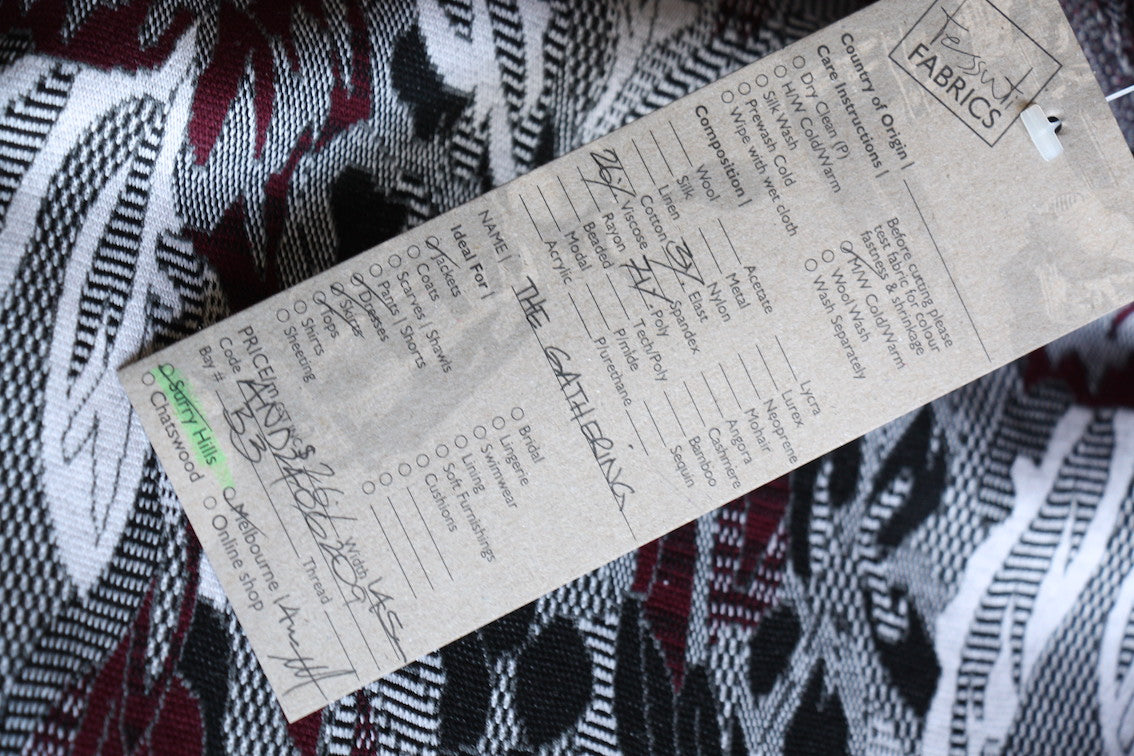 Tessuti
FABRICS
Country of Origin |
Care Instructions |
Dry Clean (P)
H/W Cold/Warm
Silk Wash
Prewash Cold
Wipe with wet cloth
Before cutting please
test fabric for colour
fastness & shrinkage
M/W Cold/Warm
Wool Wash
Wash Separately
Composition |
Wool
Silk
Linen
Cotton
26% Viscose
Rayon
Beaded
Modal
Acrylic
Acetate
Metal
Nylon
3% Elast
Spandex
71% Poly
Tech/Poly
P/mide
P/urethane
Lycra
Lurex
Neoprene
Mohair
Angora
Cashmere
Bamboo
Sequin
NAME | THE GATHERING
Ideal For |
Jackets
Coats
Scarves | Shawls
Pants | Shorts
Dresses
Skirts
Tops
Shirts
Sheeting
Bridal
Lingerie
Swimwear
Lining
Soft Furnishings
Cushions
Width 145
Thread
Bay # B3
Surry Hills
Chatswood
Melbourne |
Online shop